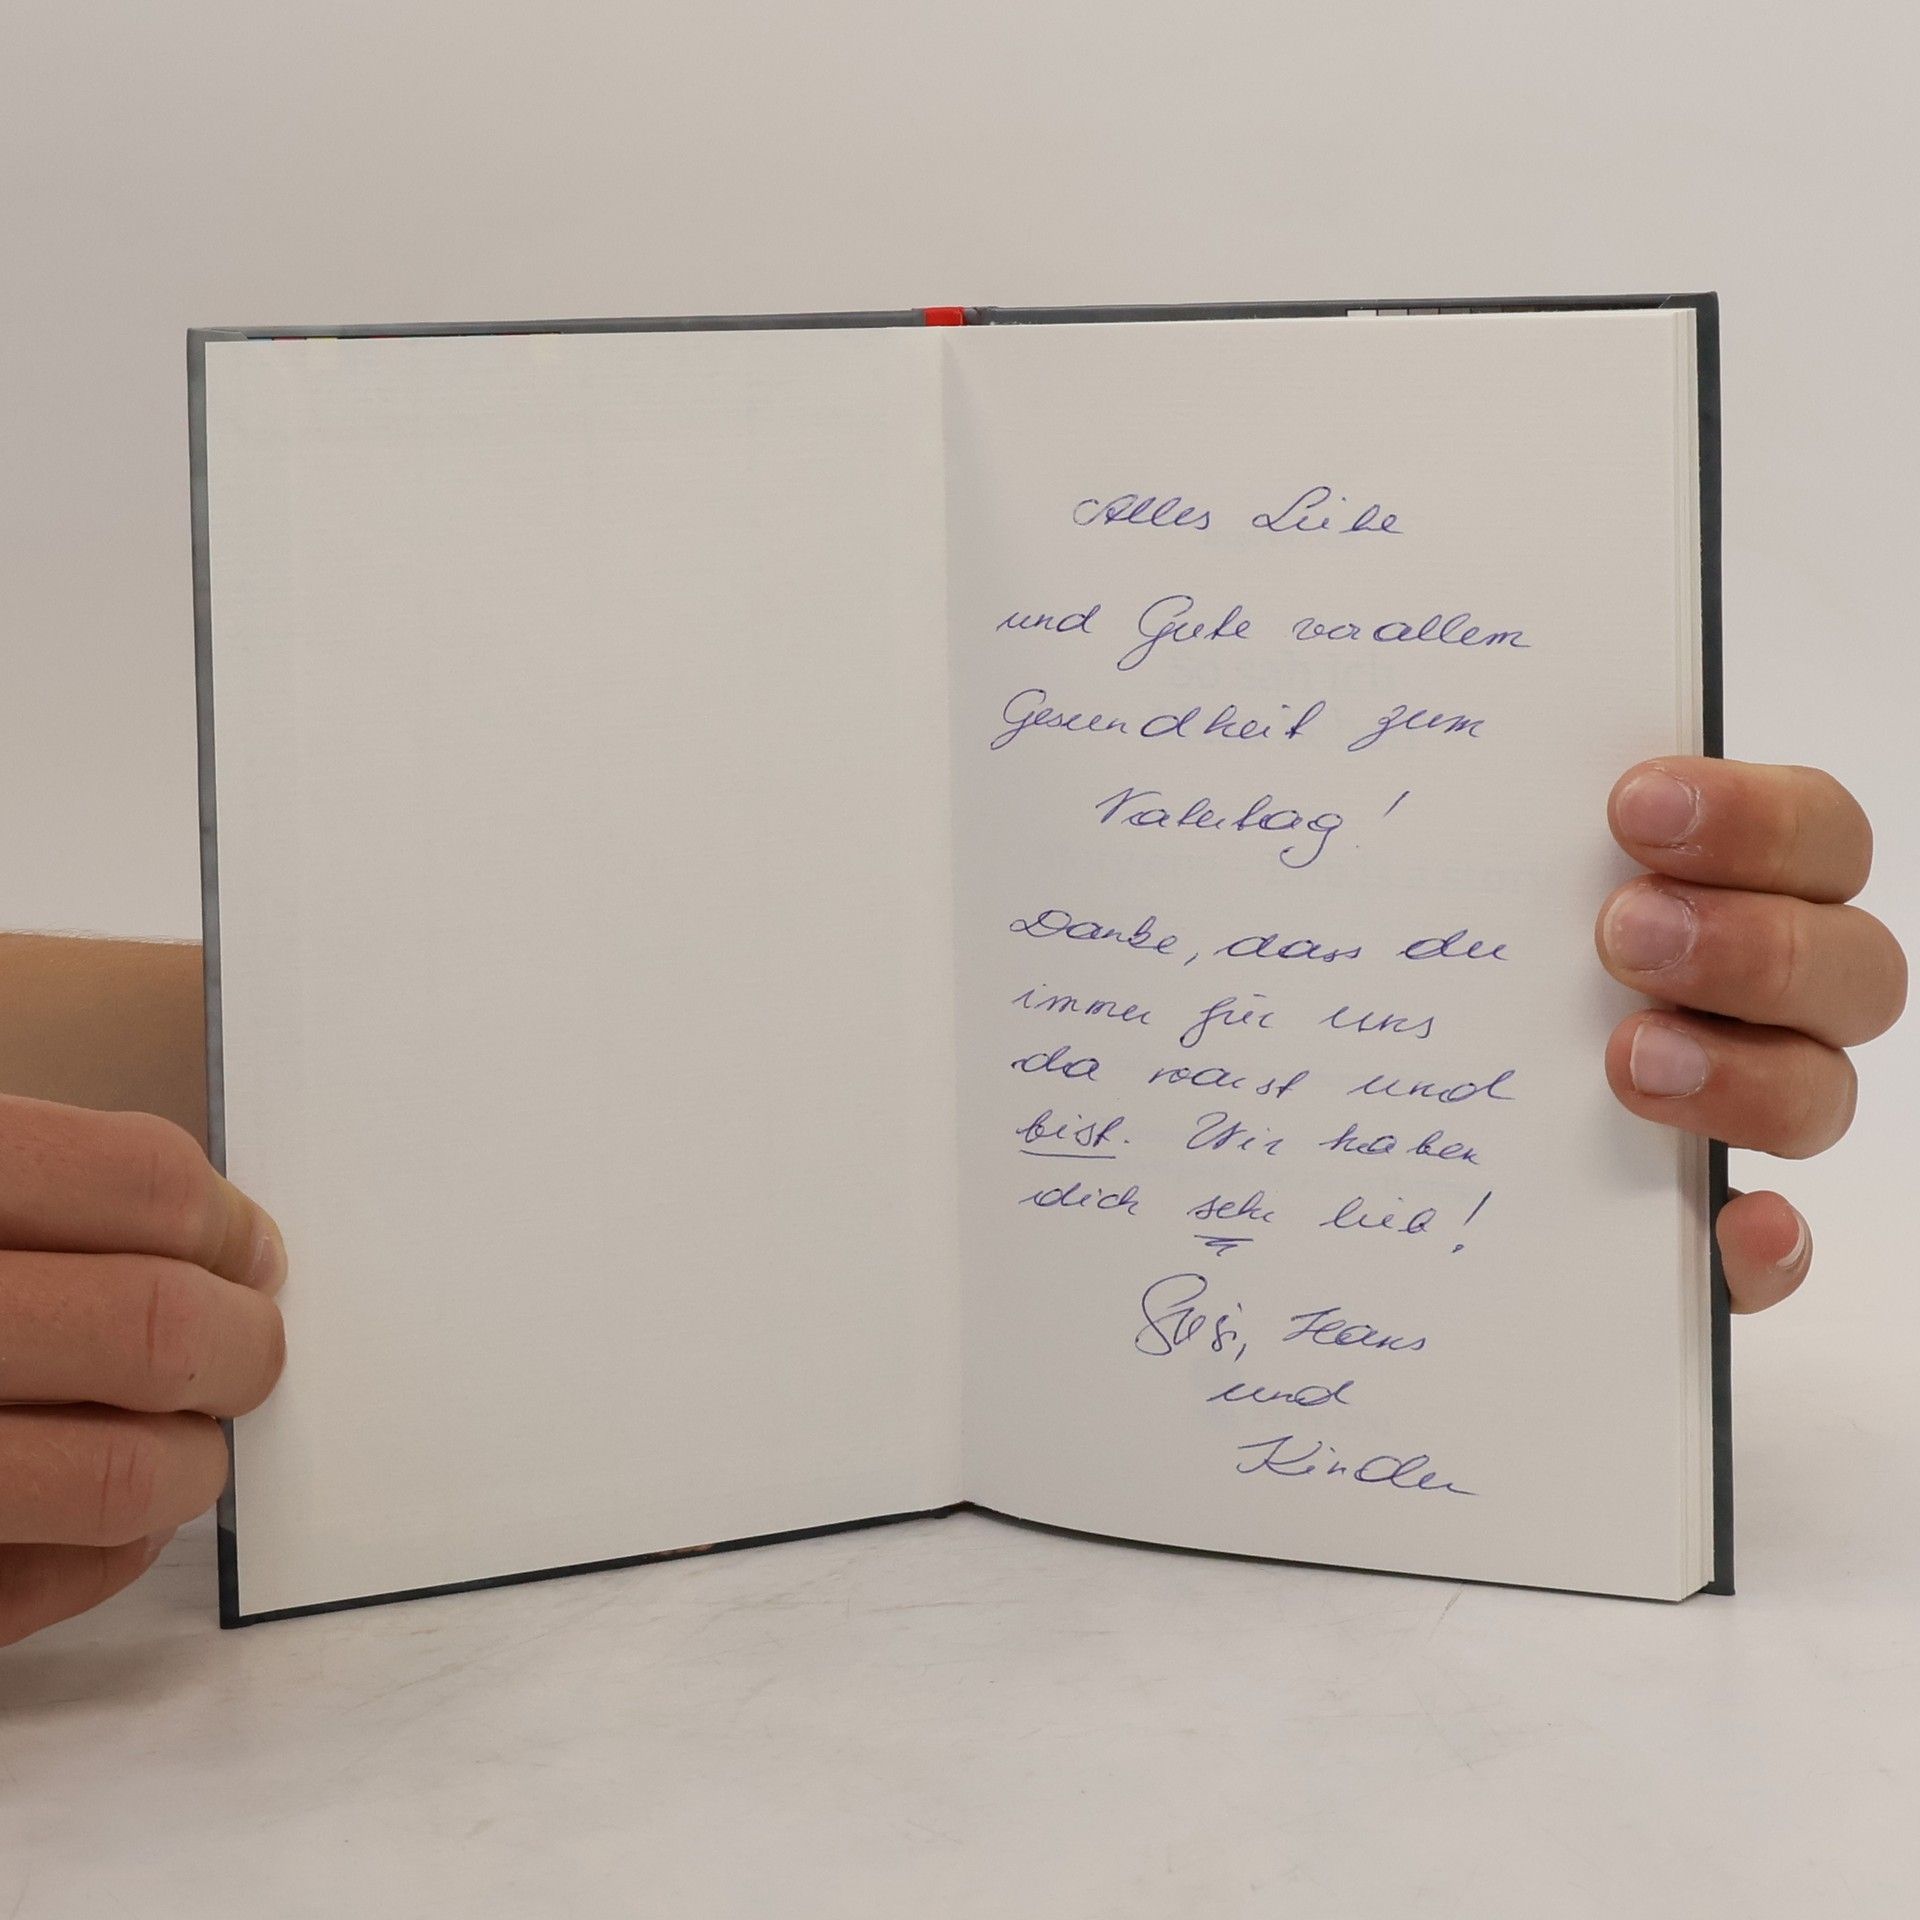 Alles Liebe
und Gute vor allem
Gesundheit zum
Vatertag!
Danke, dass du
immer für uns
da warst und
bist. Wir haben
dich sehr lieb!
Susi, Hans
und
Kinder